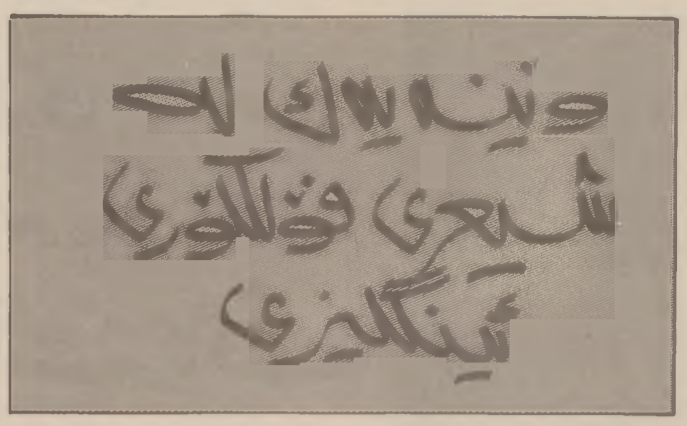 وێنەیەك لە
شیعری فۆلکلۆری
ئینگلیزی